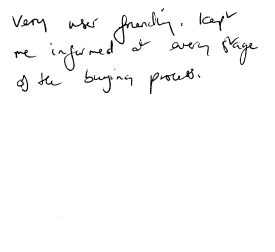 Very user friendly. Kept
me informed at every stage
of the buying process.